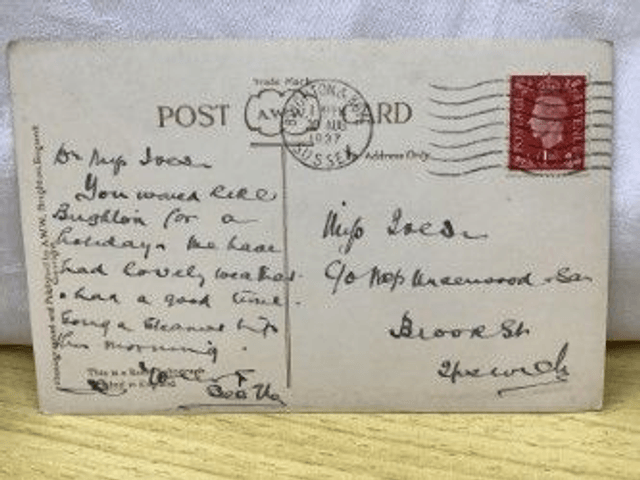 Trade Mark
POST A.W.W. CARD
BRIGHTON & HOVE
AUG
1937
SUSSEX
POSTAGE REVENUE
1
Address Only
Photographed and Published by A.W.W. Brighton, England
Copyright
Dr Miss
You would like
Brighton for a
holiday. We have
had lovely weather
& had a good time.
Going a steamer trip
this morning.
This is a Real Photograph
Printed in England
Miss
c/o Mrs Underwood
Brook St
Ipswich